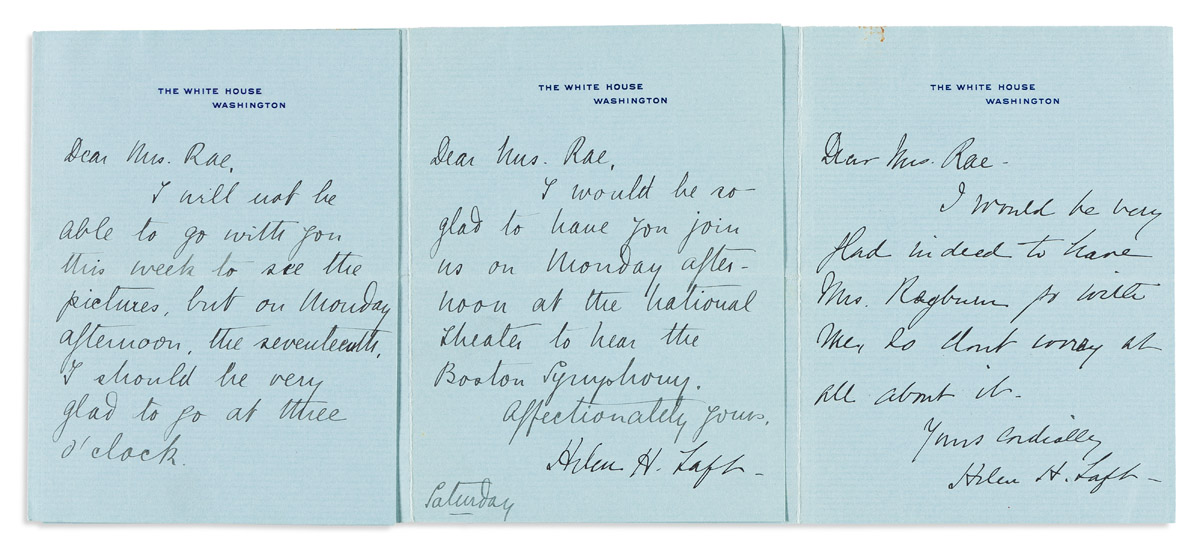 THE WHITE HOUSE
WASHINGTON
Dear Mrs. Rae,
I will not be
able to go with you
this week to see the
pictures, but on Monday
afternoon, the seventeenth,
I should be very
glad to go at three
o'clock.
THE WHITE HOUSE
WASHINGTON
Dear Mrs. Rae,
I would be so
glad to have you join
us on Monday after-
noon at the National
Theater to hear the
Boston Symphony.
Affectionately yours,
Helen H. Taft -
Saturday
THE WHITE HOUSE
WASHINGTON
Dear Mrs. Rae -
I would be very
glad indeed to have
Mrs. go with
me, so dont worry at
all about it.
Yours cordially
Helen H. Taft -